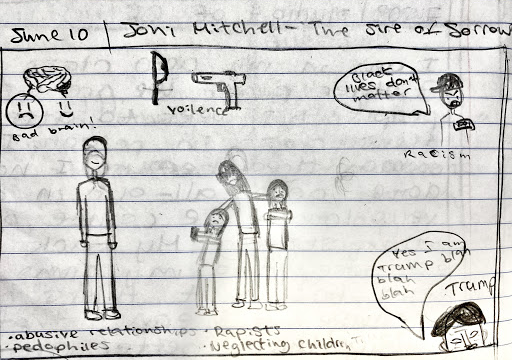 June 10 | Joni Mitchell - The Sire of Sorrow
Bad brain!
Voilence
Black
lives don't
matter
Racism
Yes I am
Trump blah
blah
blah
Trump
•abusive relationships •Rapists
•pedophiles •Neglecting children